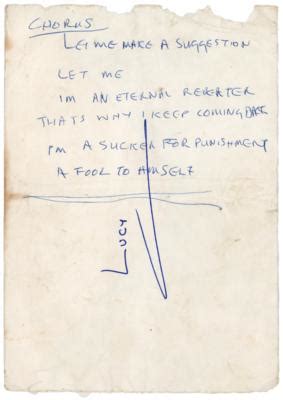 CHORUS
LET ME MAKE A SUGGESTION
LET ME
IM AN ETERNAL REVERTER
THATS WHY I KEEP COMING BACK
IM A SUCKER FOR PUNISHMENT
A FOOL TO HIMSELF
LUCY